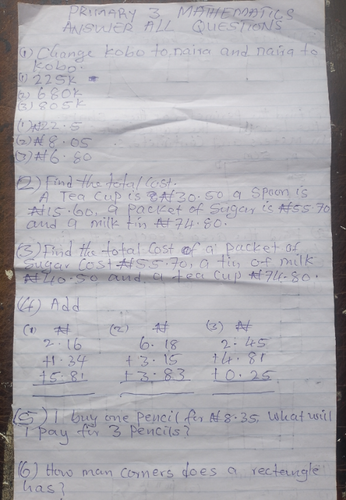 PRIMARY 3 MATHEMATICS
ANSWER ALL QUESTIONS
(1) Change kobo to naira and naira to
kobo.
(1) 225k
(2) 680k
(3) 805k
(1) ₦22.5
(2) ₦8.05
(3) ₦6.80
(2) Find the total cost.
A Tea Cup is ₦30.50 a Spoon is
₦15.60, a packet of Sugar is ₦55.70
and a milk tin ₦74.80.
(3) Find the total Cost of a packet of
Sugar Cost ₦55.70, a tin of milk
₦40.50 and a tea Cup ₦74.80.
(4) Add
(1) ₦ (2) ₦ (3) ₦
2.16 6.18 2.45
+1.34 +3.15 +4.81
+5.81 +3.83 +0.25
(5) I buy one pencil for ₦8.35. What will
I pay for 3 pencils?
(6) How man corners does a rectangle
has?